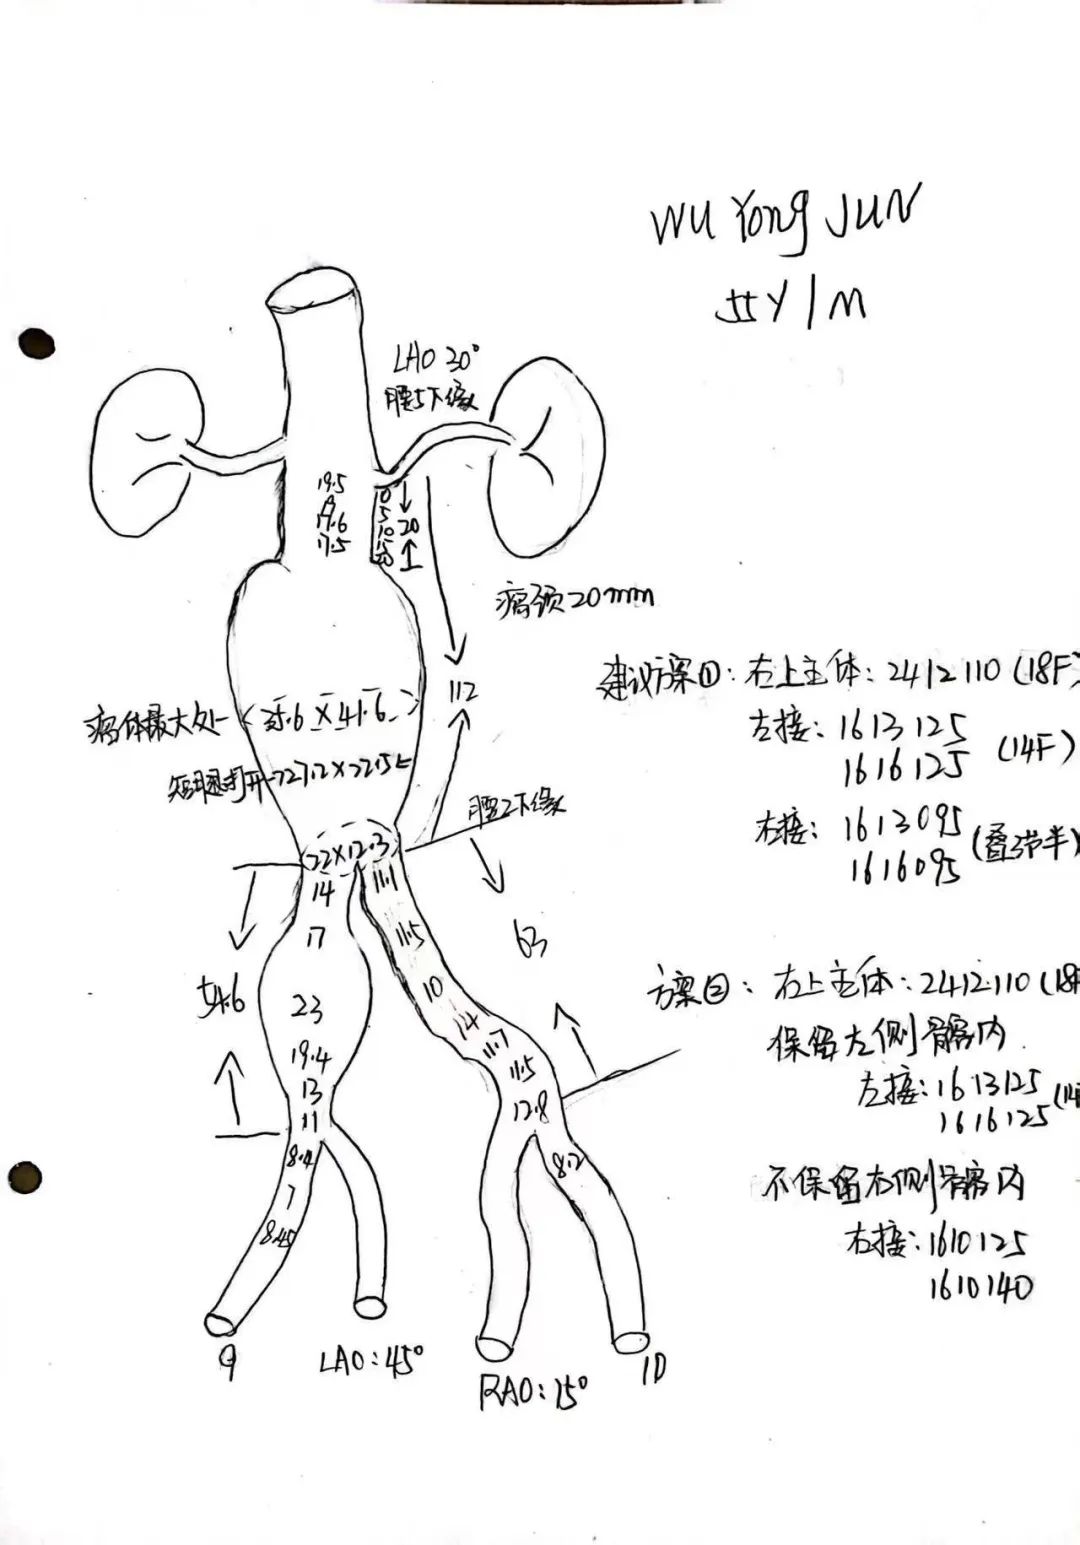 WU Yong JUN
55Y/M
LAO 30°
腰5下缘
19.5
19.6
17.5
0
5
10
15
20
20
瘤颈20mm
112
建议方案①: 右上主体: 2412110 (18F)
左接: 1613125
1616125 (14F)
右接: 1613095
1616095 (叠3节半)
瘤体最大处 35.6×41.6
短腿打开→27.2×22.5
腰2下缘
22×12.3
14
17
23
19.4
13
11
8.4
7
8.45
9
54.6
11.1
11.5
10
14
11.7
11.5
12.8
8.2
10
63
LAO: 45°
RAO: 15°
方案②: 右上主体: 2412110 (18F
保留左侧髂内
左接: 1613125
1616125 (14
不保留右侧髂内
右接: 1610125
1610140